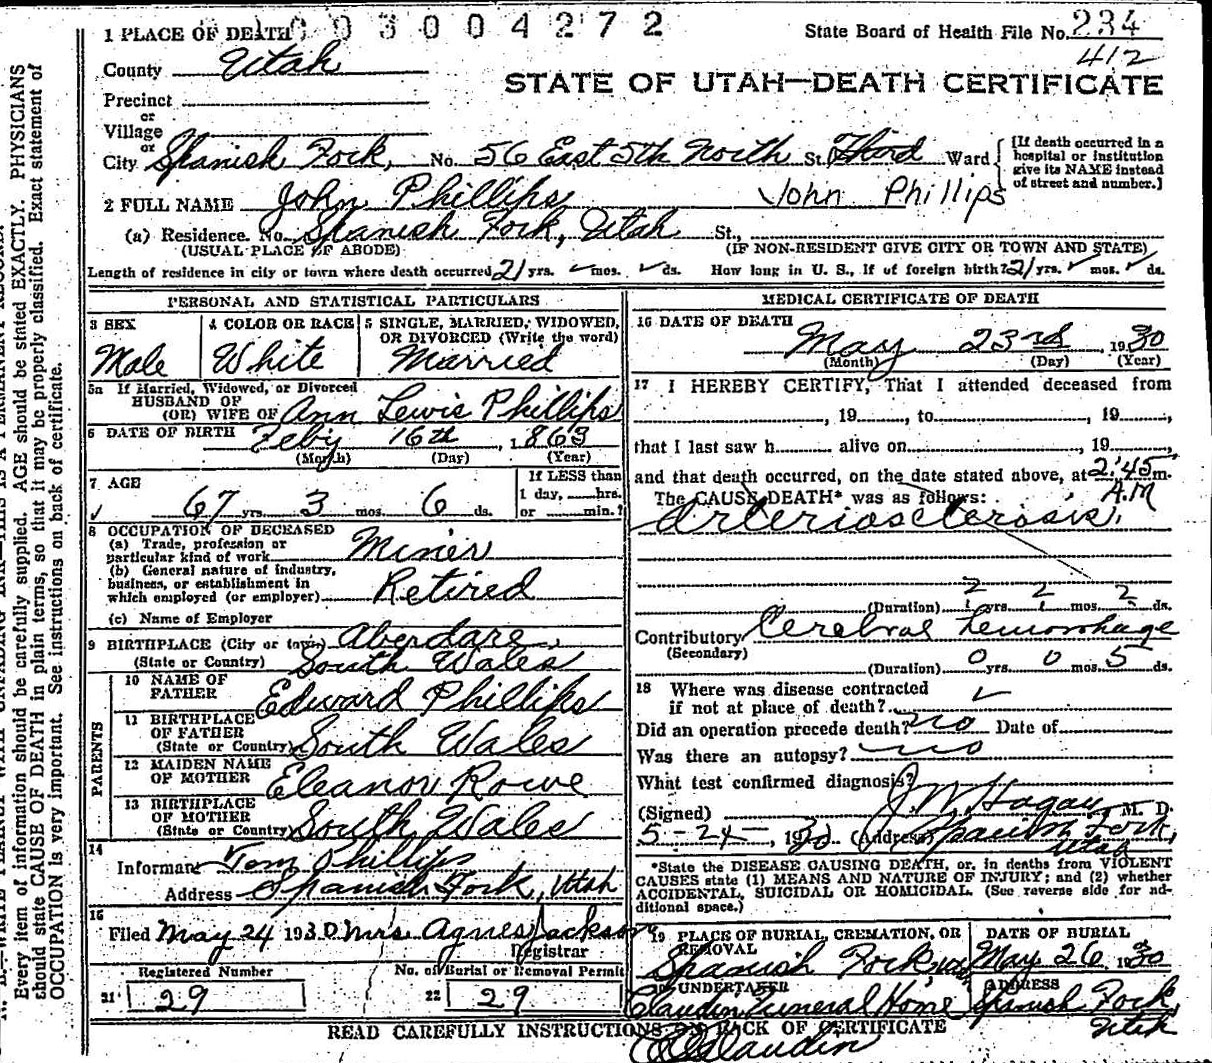 1 PLACE OF DEATH
3 0 0 4 2 7 2
State Board of Health File No. 234
412
County Utah
STATE OF UTAH—DEATH CERTIFICATE
Precinct
or
Village
or
City Spanish Fork, No. 56 East 5th North St. Third Ward
[If death occurred in a hospital or institution give its NAME instead of street and number.]
2 FULL NAME John Phillips John Phillips
(a) Residence. No. Spanish Fork, Utah St.,
(USUAL PLACE OF ABODE) (IF NON-RESIDENT GIVE CITY OR TOWN AND STATE)
Length of residence in city or town where death occurred 21 yrs. mos. ds. How long in U. S., if of foreign birth? 21 yrs. mos. ds.
PERSONAL AND STATISTICAL PARTICULARS
3 SEX
Male
4 COLOR OR RACE
White
5 SINGLE, MARRIED, WIDOWED,
OR DIVORCED (Write the word)
Married
5a If Married, Widowed, or Divorced
HUSBAND OF
(OR) WIFE OF Ann Lewis Phillips
6 DATE OF BIRTH Feby 16th, 1863
(Month) (Day) (Year)
7 AGE
67 yrs. 3 mos. 6 ds.
If LESS than
1 day, hrs.
or min.?
8 OCCUPATION OF DECEASED
(a) Trade, profession or
particular kind of work Miner
(b) General nature of industry,
business, or establishment in
which employed (or employer) Retired
(c) Name of Employer
9 BIRTHPLACE (City or town) Aberdare,
(State or Country) South Wales
PARENTS
10 NAME OF
FATHER Edward Phillips
11 BIRTHPLACE
OF FATHER
(State or Country) South Wales
12 MAIDEN NAME
OF MOTHER Eleanor Rowe
13 BIRTHPLACE
OF MOTHER
(State or Country) South Wales
14
Informant Tom Phillips
Address Spanish Fork, Utah
15
Filed May 24 1930 Mrs. Agnes Jackson
Registrar
Registered Number
21 29
No. of Burial or Removal Permit
22 29
MEDICAL CERTIFICATE OF DEATH
16 DATE OF DEATH
May 23rd 1930
(Month) (Day) (Year)
17 I HEREBY CERTIFY, That I attended deceased from
, 19 , to , 19 ,
that I last saw h alive on , 19
and that death occurred, on the date stated above, at 2:45 m.
A.M
The CAUSE DEATH* was as follows:
Arteriosclerosis,
(Duration) yrs. mos. ds.
Contributory Cerebral hemorrhage
(Secondary)
(Duration) 0 yrs. 0 mos. 5 ds.
18 Where was disease contracted
if not at place of death?
Did an operation precede death? no Date of
Was there an autopsy? no
What test confirmed diagnosis?
(Signed) J. W. Hagan, M. D.
5-24-, 1930 (Address) Spanish Fork,
Utah
*State the DISEASE CAUSING DEATH, or, in deaths from VIOLENT
CAUSES state (1) MEANS AND NATURE OF INJURY; and (2) whether
ACCIDENTAL, SUICIDAL OR HOMICIDAL. (See reverse side for additional space.)
19 PLACE OF BURIAL, CREMATION, OR
REMOVAL
Spanish Fork
DATE OF BURIAL
May 26, 1930
UNDERTAKER
Claudin Funeral Home
ADDRESS
Spanish Fork,
Utah
READ CAREFULLY INSTRUCTIONS ON BACK OF CERTIFICATE
Claudin
Every item of information should be carefully supplied. AGE should be stated EXACTLY. PHYSICIANS
should state CAUSE OF DEATH in plain terms, so that it may be properly classified. Exact statement of
OCCUPATION is very important. See instructions on back of certificate.